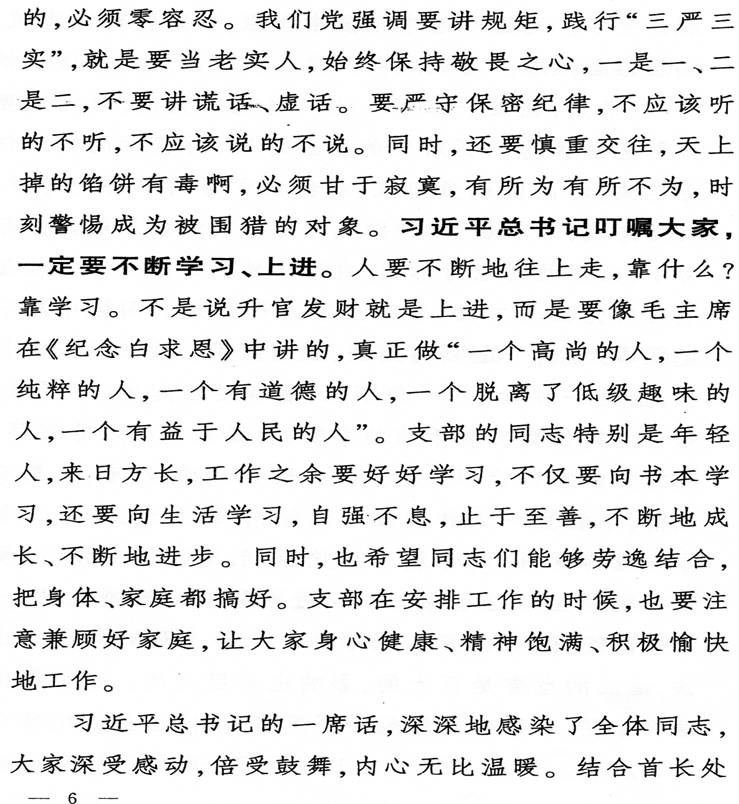 的,必须零容忍。我们党强调要讲规矩,践行“三严三
实”,就是要当老实人,始终保持敬畏之心,一是一、二
是二,不要讲谎话、虚话。要严守保密纪律,不应该听
的不听,不应该说的不说。同时,还要慎重交往,天上
掉的馅饼有毒啊,必须甘于寂寞,有所为有所不为,时
刻警惕成为被围猎的对象。习近平总书记叮嘱大家,
一定要不断学习、上进。人要不断地往上走,靠什么?
靠学习。不是说升官发财就是上进,而是要像毛主席
在《纪念白求恩》中讲的,真正做“一个高尚的人,一个
纯粹的人,一个有道德的人,一个脱离了低级趣味的
人,一个有益于人民的人”。支部的同志特别是年轻
人,来日方长,工作之余要好好学习,不仅要向书本学
习,还要向生活学习,自强不息,止于至善,不断地成
长、不断地进步。同时,也希望同志们能够劳逸结合,
把身体、家庭都搞好。支部在安排工作的时候,也要注
意兼顾好家庭,让大家身心健康、精神饱满、积极愉快
地工作。
习近平总书记的一席话,深深地感染了全体同志,
大家深受感动,倍受鼓舞,内心无比温暖。结合首长处
— 6 —